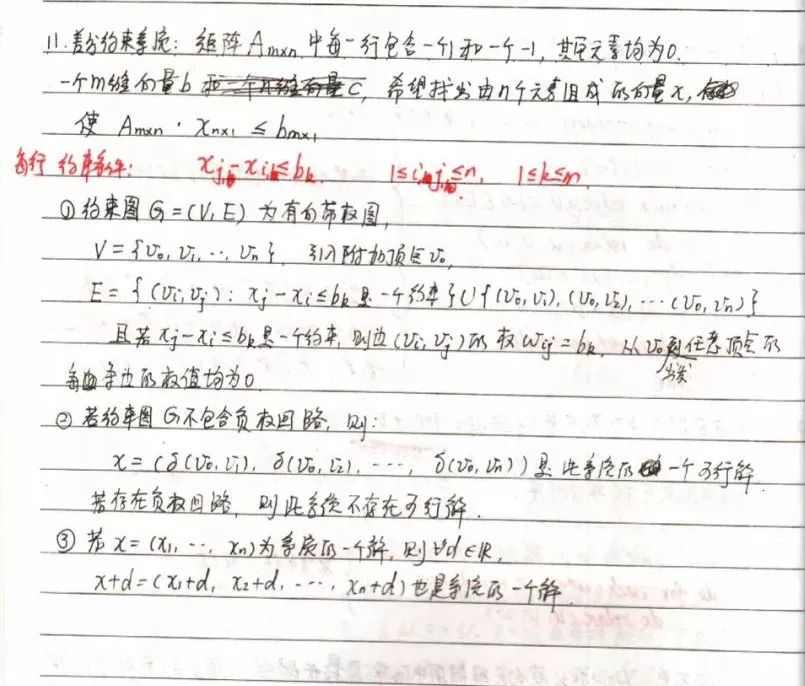 11. 差分约束系统: 矩阵 Aₘₓₙ 中每一行包含一个1和一个-1, 其它元素均为0.
一个m维向量b 和一个n维向量c, 希望找出由n个元素组成的向量x,
使 Aₘₓₙ · xₙₓ₁ ≤ bₘₓ₁
每行约束条件: xⱼ - xᵢ ≤ bₖ, 1≤i,j≤n, 1≤k≤m.
①约束图 G=(V,E) 为有向带权图,
V={v₀, v₁, ..., vₙ}. 引入附加顶点v₀,
E={(vᵢ,vⱼ): xⱼ-xᵢ≤bₖ是一个约束}∪{(v₀,v₁),(v₀,v₂),...(v₀,vₙ)}
且若xⱼ-xᵢ≤bₖ是一个约束, 则边(vᵢ,vⱼ)的权wᵢⱼ=bₖ. 从v₀出发到任意顶点的
每条边的权值均为0.
② 若约束图 G不包含负权回路, 则:
x=(δ(v₀,v₁), δ(v₀,v₂), ..., δ(v₀,vₙ))是此系统的一个可行解.
若存在负权回路, 则此系统不存在可行解.
③ 若 x=(x₁, ..., xₙ)为系统的一个解, 则∀d∈R,
x+d=(x₁+d, x₂+d, ..., xₙ+d)也是系统的一个解.